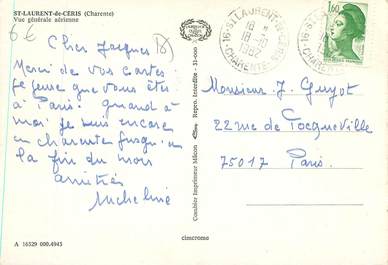 ST-LAURENT-de-CERIS (Charente)
Vue générale aérienne
6 €
Cher Jacques
Merci de vos cartes
je pense que vous êtes
à Paris. quand à
moi je suis encore
en charente jusqu'à
la fin du mois
amitiés
Micheline
A 16329 000.4943
Combier Imprimeur Mâcon
Repro. Interdite - 31-000
cimcrome
16-ST LAURENT-DE-CERIS
18
1982
CHARENTE
1,60
Monsieur J. Guyot
22 rue de Tocqueville
75017 Paris.